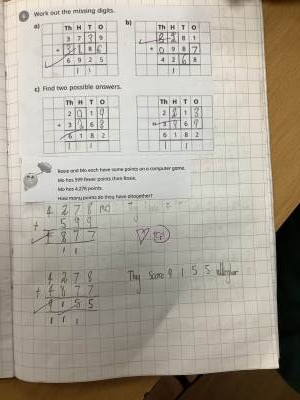 6 Work out the missing digits.
a) b)
Th H T O Th H T O
3 7 3 9 8 1
+ 8 6 + 0 9 8 7
6 9 2 5 4 2 6 8
1 1 1
c) Find two possible answers.
Th H T O Th H T O
2 1
+ 3 + 3
6 1 8 2 6 1 8 2
1 1 1 1
Rosie and Mo each have some points on a computer game.
Mo has 599 fewer points than Rosie.
Mo has 4,278 points.
How many points do they have altogether?
4 2 7 8
+ 5 9 9
4 8 7 7
1 1
4 2 7 8
+ 4 8 7 7
9 1 5 5
1 1 1
They score 9 1 5 5